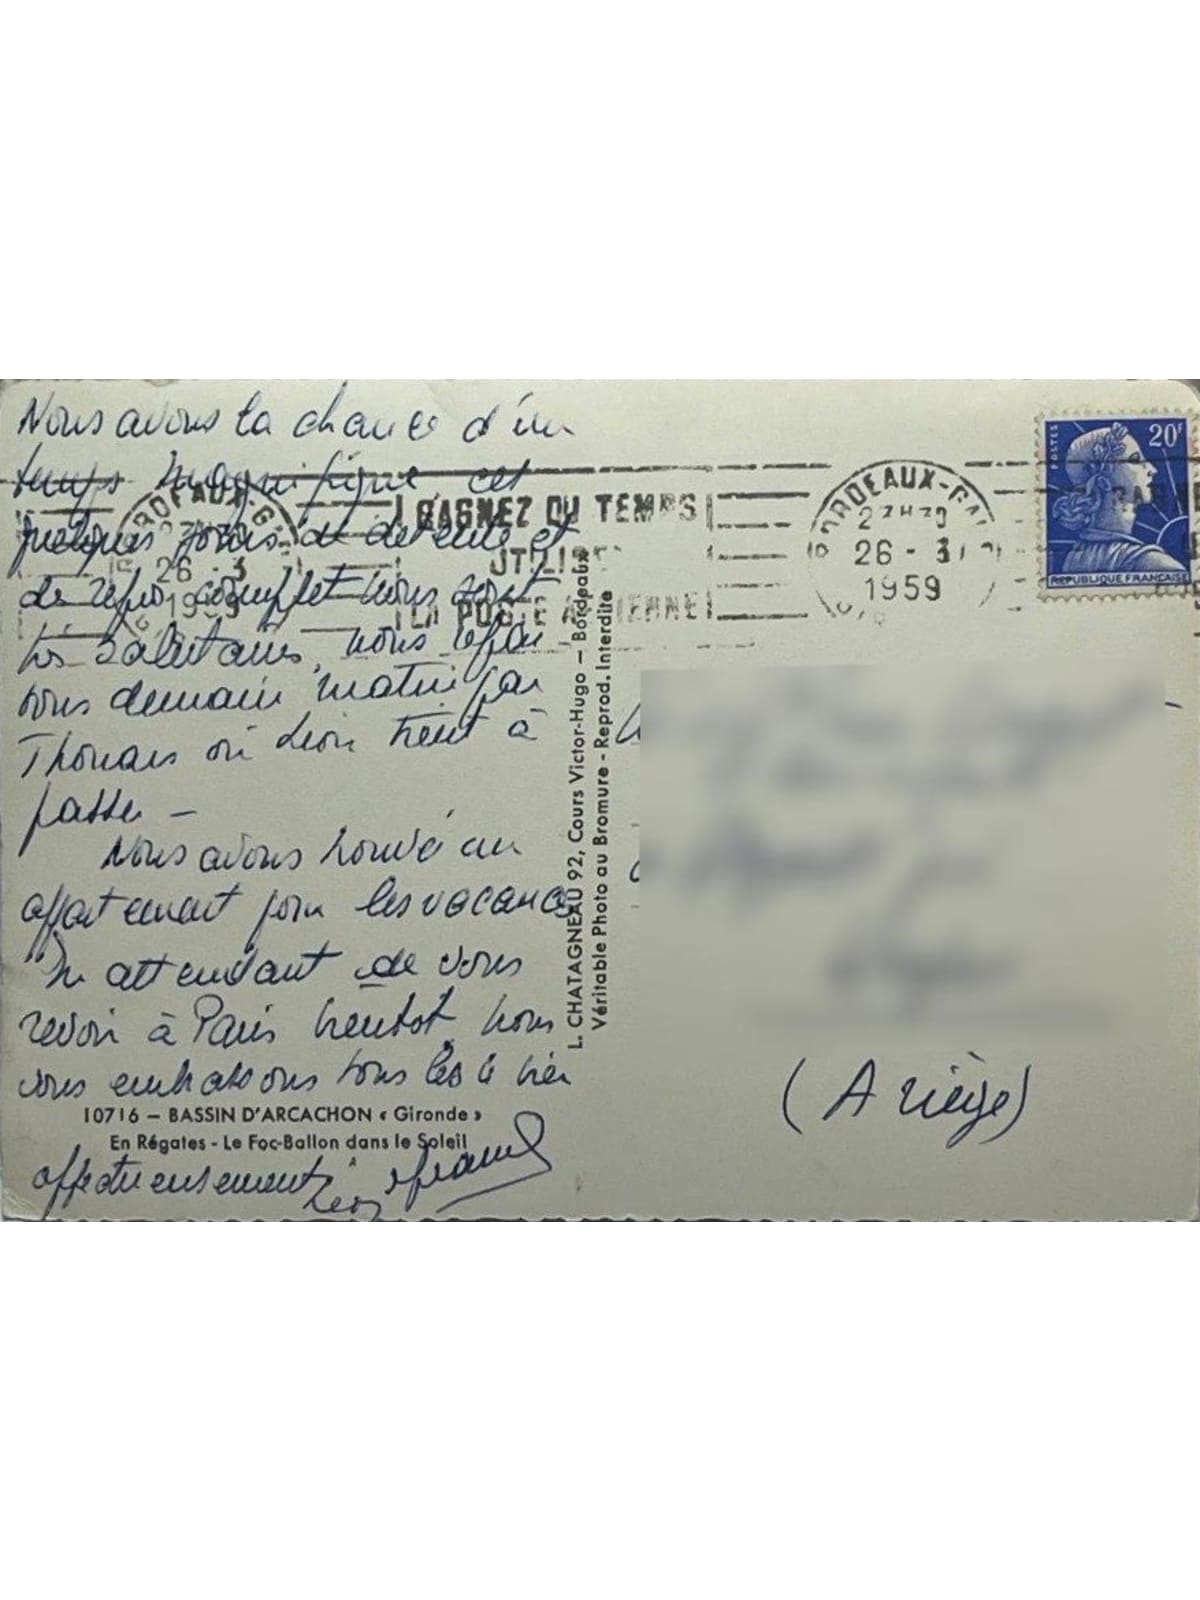 Nous avons la chance d'un
temps magnifique ces
quelques jours de détente et
de repos complet nous sont
très salutaires, nous repar
tons demain matin par
Thouars où Léon tient à
passer -
Nous avons trouvé un
appartement pour les vacances
En attendant de vous
revoir à Paris bientôt nous
vous embrassons tous les 4 bien
affectueusement
10716 - BASSIN D'ARCACHON « Gironde »
En Régates - Le Foc-Ballon dans le Soleil
L. CHATAGNEAU 92, Cours Victor-Hugo - Bordeaux
Véritable Photo au Bromure - Reprod. Interdite
BORDEAUX-G
26 - 3
1959
GAGNEZ DU TEMPS
UTILISE
LA POSTE A IENNE
BORDEAUX-GA
23H30
26 - 3
1959
POSTES
20F
REPUBLIQUE FRANCAISE
(Ariège)